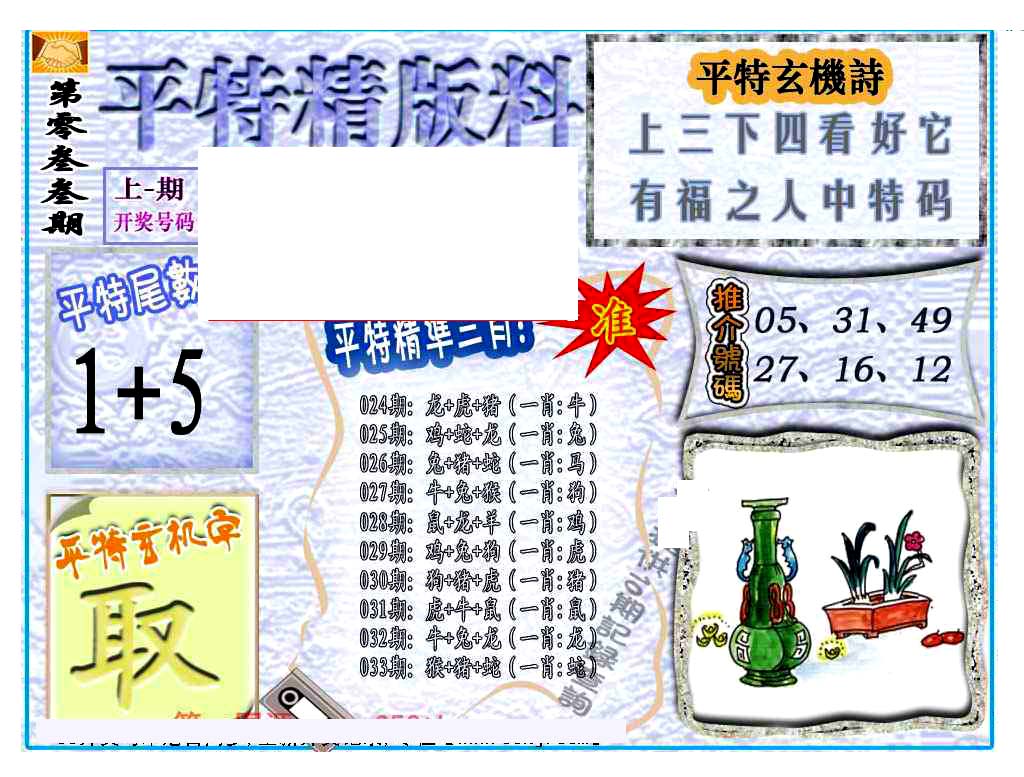 第零叁叁期
平特精版料
上-期
开奖号码
平特玄機詩
上三下四看好它
有福之人中特码
平特尾數
1+5
平特精準三肖!
准
推介號碼
05、31、49
27、16、12
024期: 龙+虎+猪 (一肖:牛)
025期: 鸡+蛇+龙 (一肖:兔)
026期: 兔+猪+蛇 (一肖:马)
027期: 牛+兔+猴 (一肖:狗)
028期: 鼠+龙+羊 (一肖:鸡)
029期: 鸡+兔+狗 (一肖:虎)
030期: 狗+猪+虎 (一肖:猪)
031期: 虎+牛+鼠 (一肖:鼠)
032期: 牛+兔+龙 (一肖:龙)
033期: 猴+猪+蛇 (一肖:蛇)
期記錄查詢
平特玄机字
取